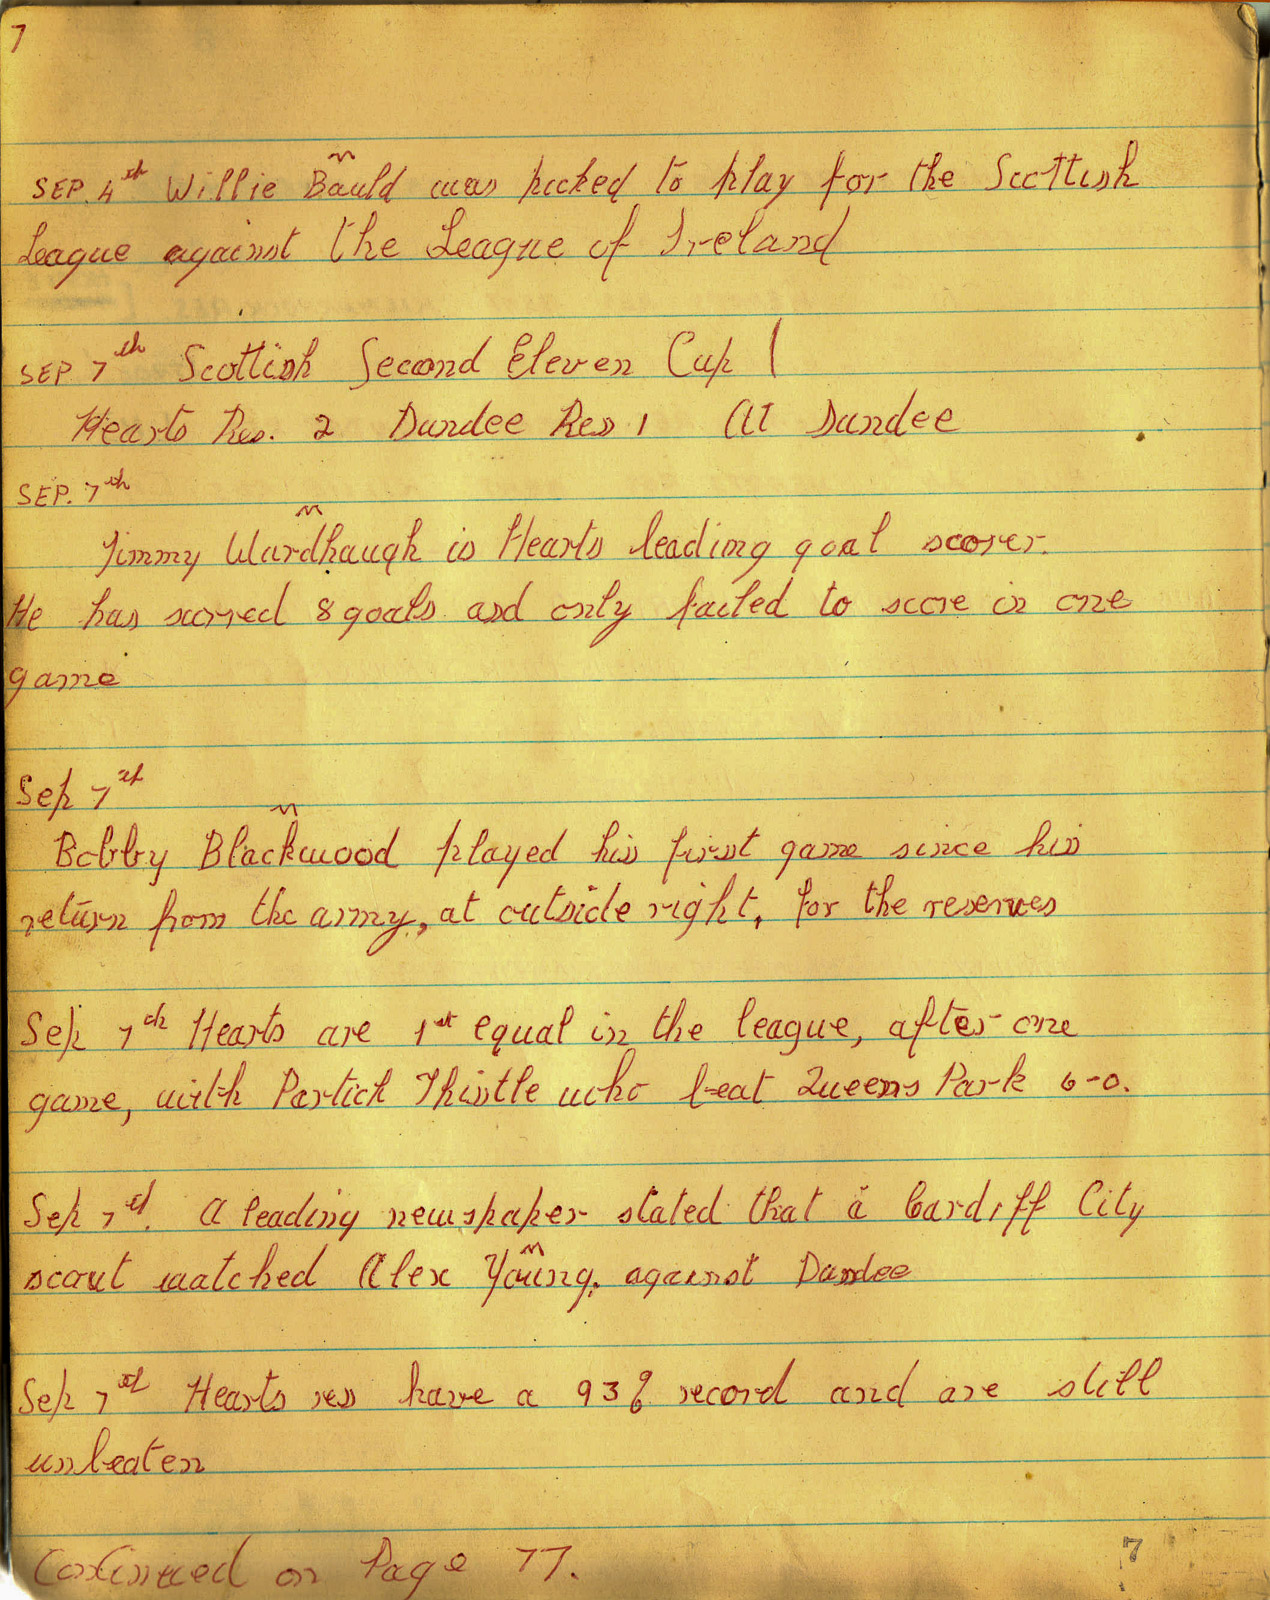 7
SEP. 4th Willie Bauld was picked to play for the Scottish
League against the League of Ireland
SEP 7th Scottish Second Eleven Cup
Hearts Res. 2 Dundee Res 1 At Dundee
SEP. 7th
Jimmy Wardhaugh is Hearts leading goal scorer.
He has scorred 8 goals and only failed to score in one
game
Sep 7th
Bobby Blackwood played his first game since his
return from the army, at outside right, for the reserves
Sep 7th Hearts are 1st equal in the league, after one
game, with Partick Thistle who beat Queens Park 6-0.
Sep 7th. A leading newspaper stated that a Cardiff City
scout watched Alex Young, against Dundee
Sep 7th Hearts res have a 93% record and are still
unbeaten
Continued on Page 77.
7